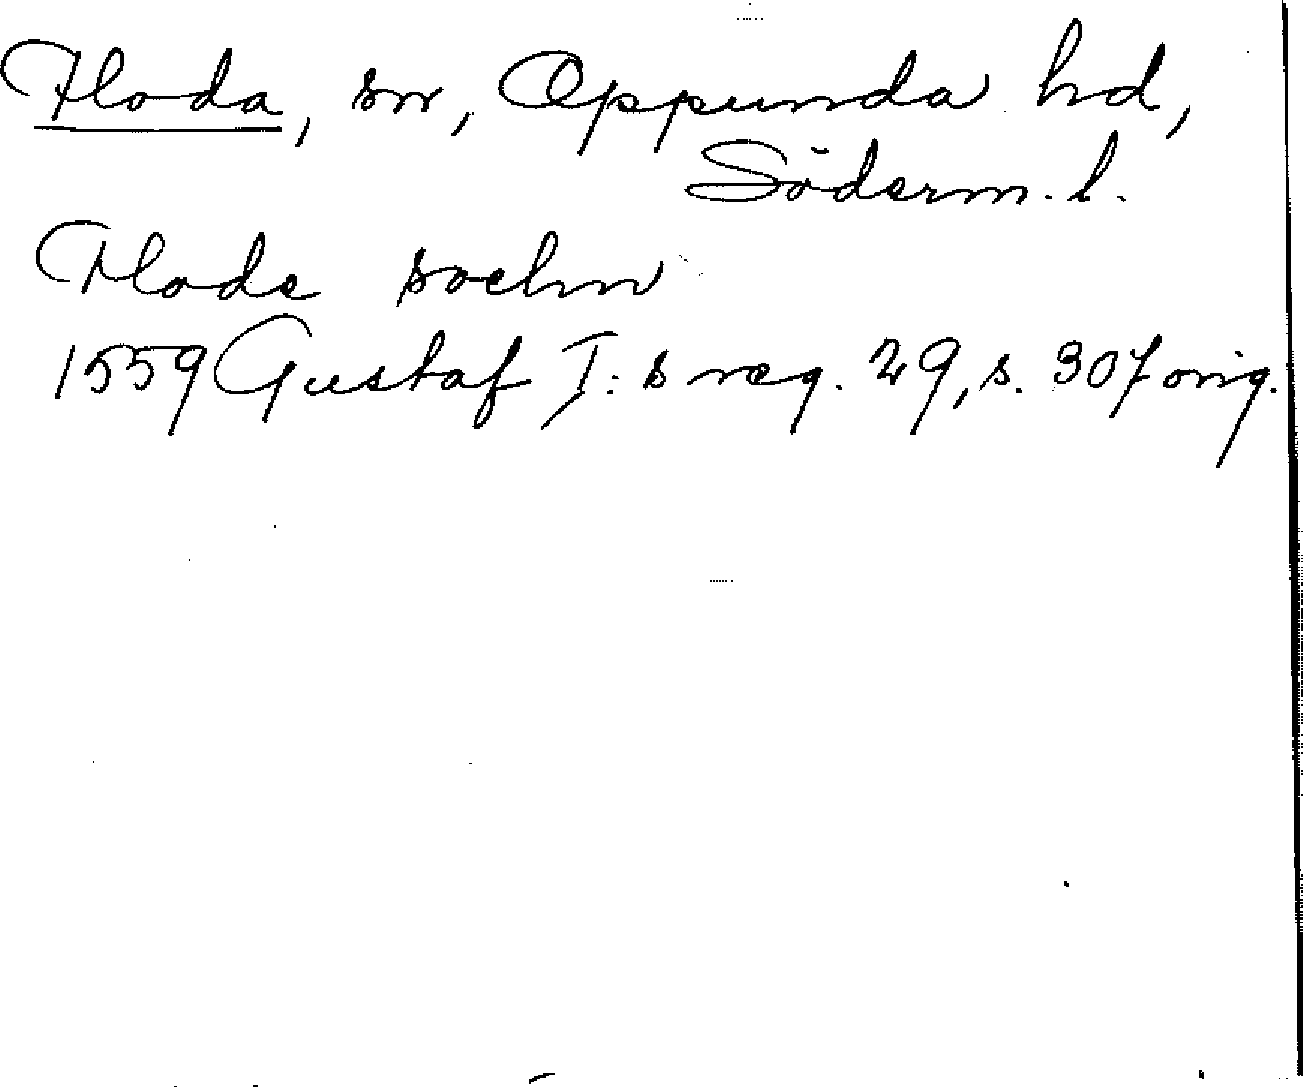 Floda, sn, Oppunda hd,
Söderm. l.
Flode sochn
1559 Gustaf I:s reg. 29, s. 307 orig.